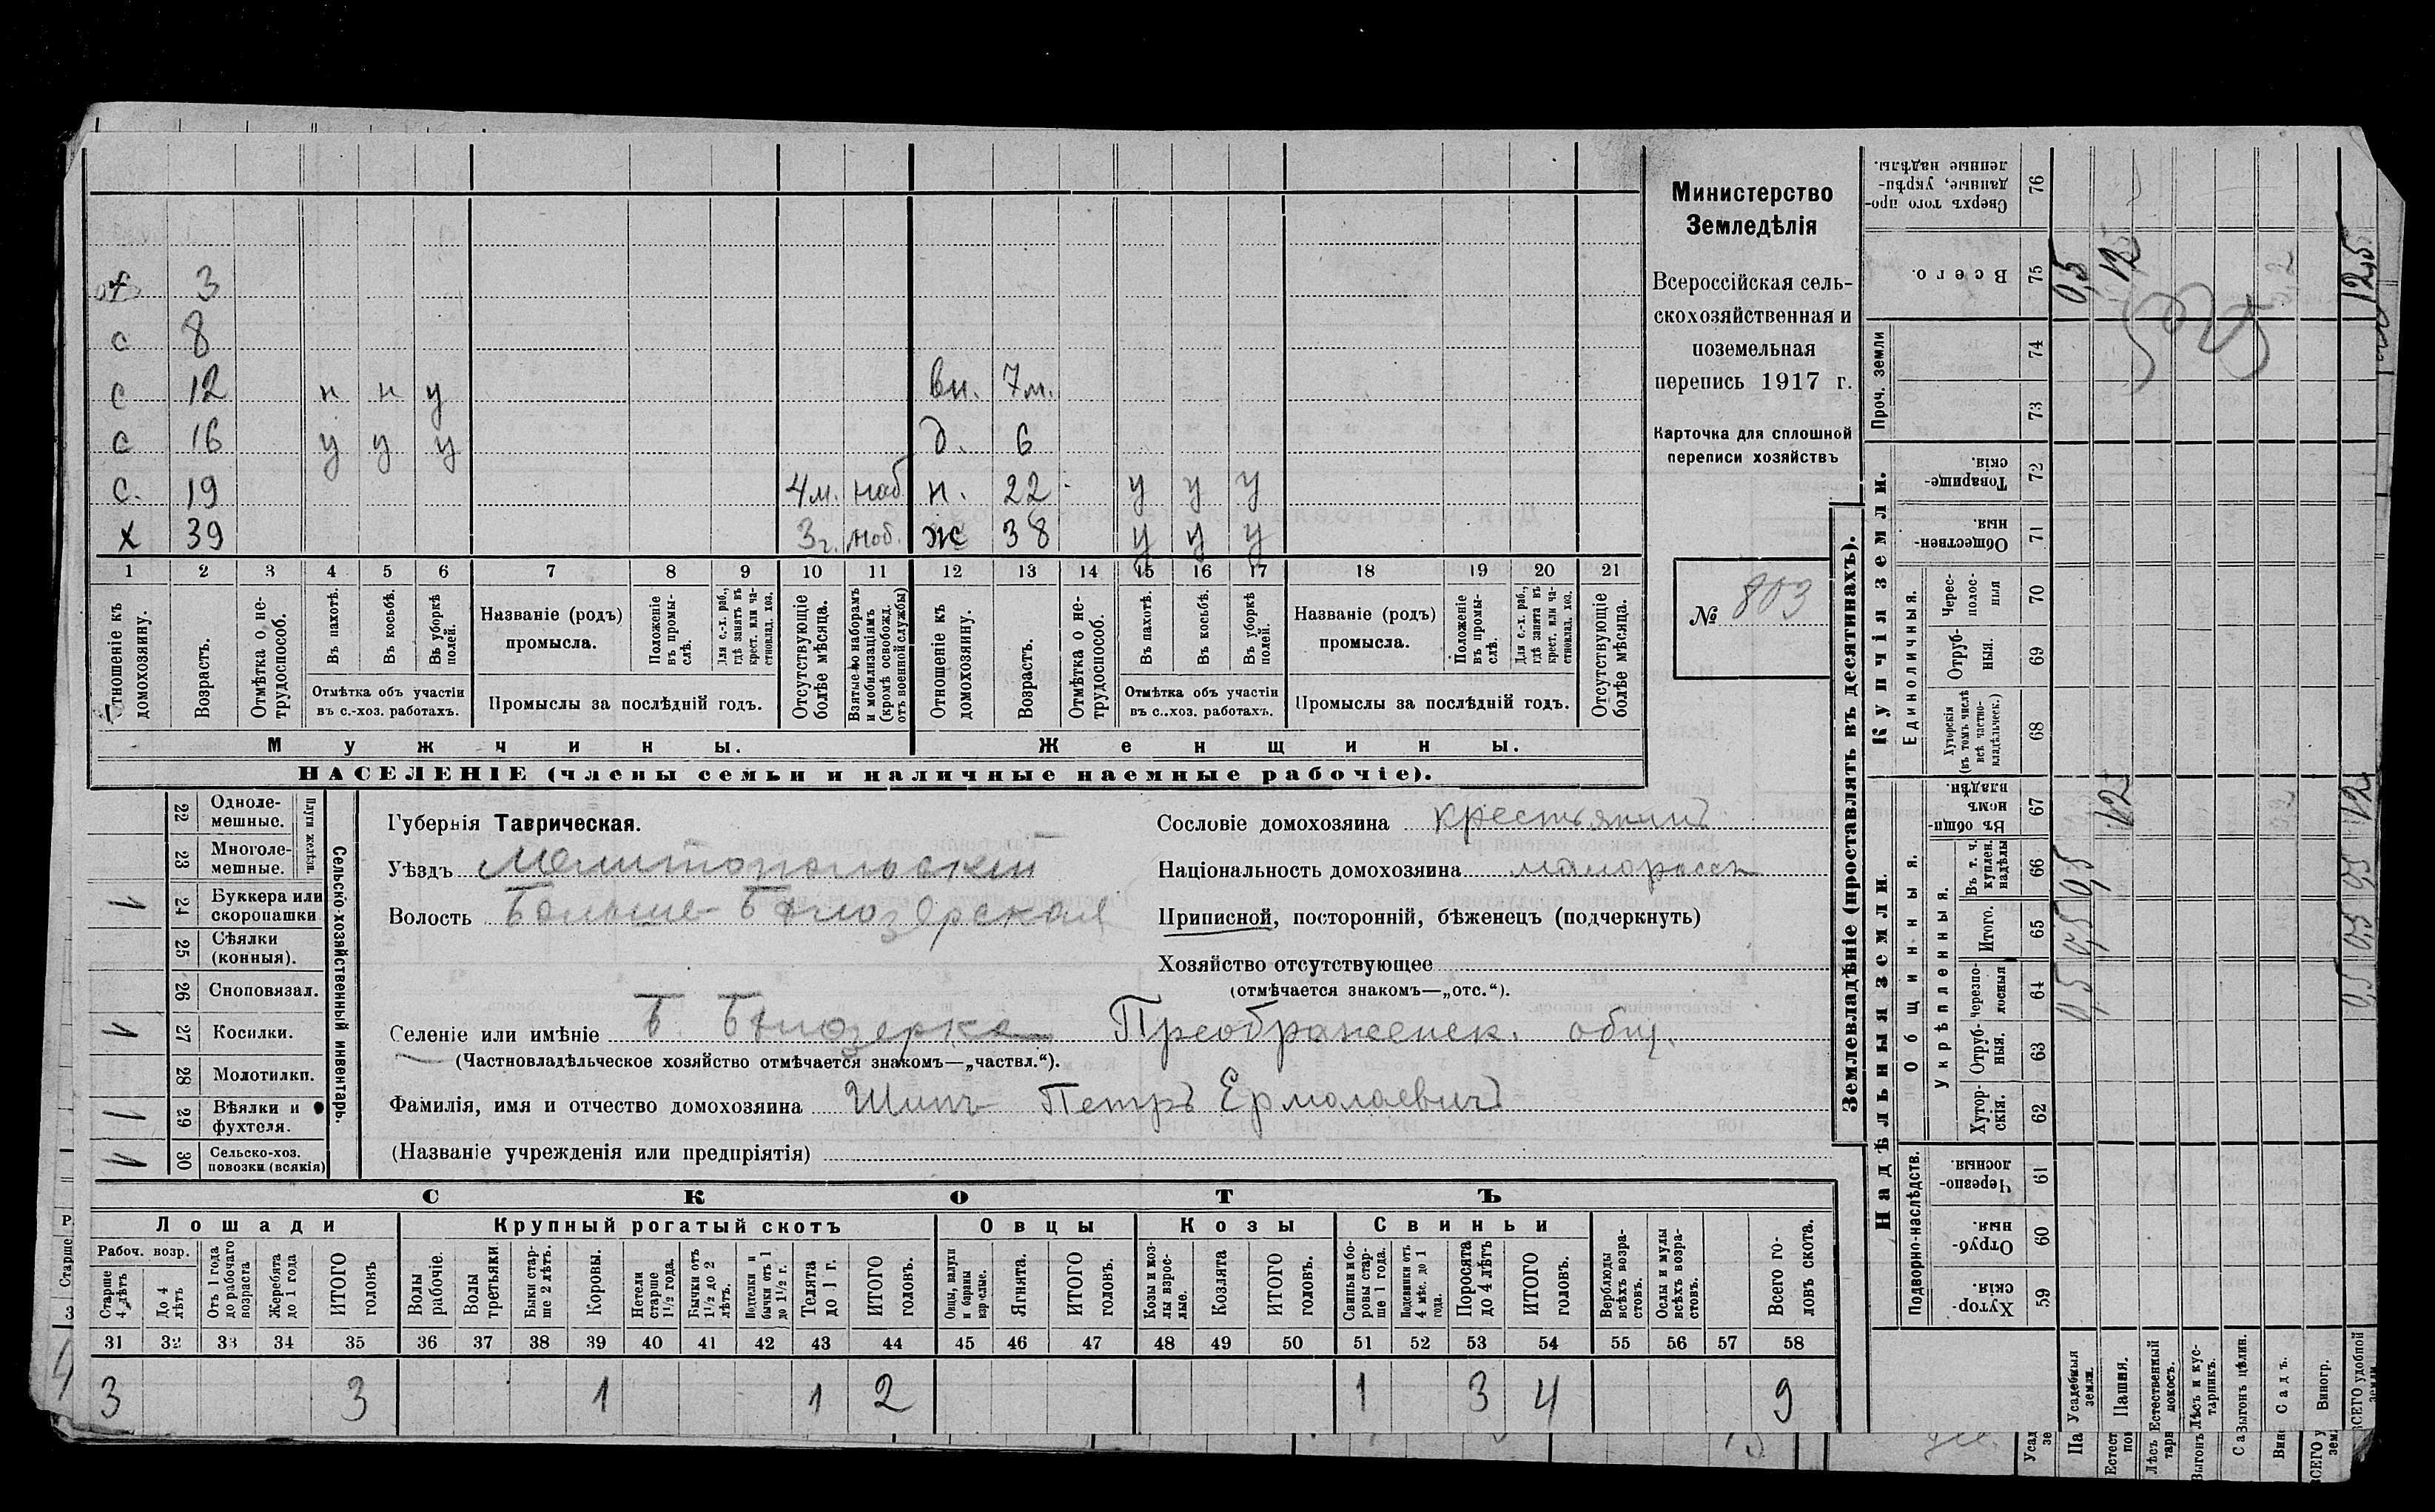 3
с 8
с 12 н н у вн. 7м.
с 16 у у у д. 6
с. 19 4м. моб н. 22 у у у
х 39 3г. моб. ж 38 у у у
1 2 3 4 5 6 7 8 9 10 11 12 13 14 15 16 17 18 19 20 21
Отношеніе къ домохозяину.
Возрастъ.
Отмѣтка о нетрудоспособ.
Въ пахотѣ.
Въ косьбѣ.
Въ уборкѣ полей.
Отмѣтка объ участіи
въ с.-хоз. работахъ.
Названіе (родъ)
промысла.
Положеніе въ промыслѣ.
Для с.-х. раб., гдѣ занятъ въ крест. или частновлад. хоз.
Промыслы за послѣдній годъ.
Отсутствующіе болѣе мѣсяца.
Взятые по наборамъ и мобилизаціямъ (кромѣ освобожд. отъ военной службы)
Отношеніе къ домохозяину.
Возрастъ.
Отмѣтка о нетрудоспособ.
Въ пахотѣ.
Въ косьбѣ.
Въ уборкѣ полей.
Отмѣтка объ участіи
въ с..хоз. работахъ.
Названіе (родъ)
промысла.
Положеніе въ промыслѣ.
Для с.-х. раб., гдѣ занята въ крест. или частновлад. хоз.
Промыслы за послѣдній годъ.
Отсутствующіе болѣе мѣсяца.
Мужчины.
Женщины.
НАСЕЛЕНІЕ (члены семьи и наличные наемные рабочіе).
Министерство
Земледѣлія
Всероссійская сель-
скохозяйственная и
поземельная
перепись 1917 г.
Карточка для сплошной
переписи хозяйствъ
№ 803
22 Одноле-
мешные.
23 Многоле-
мешные.
Плуги желѣзн.
24 Буккера или
скоропашки 1
25 Сѣялки
(конныя).
26 Сноповязал.
27 Косилки. 1
28 Молотилки.
29 Вѣялки и
фухтеля. 1
30 Сельско-хоз.
повозки (всякія)
Сельско-хозяйственный инвентарь.
Губернія Таврическая.
Уѣздъ Мелитопольскій
Волость Больше-Бѣлозерская
Сословіе домохозяина крестьянинъ
Національность домохозяина малороссъ
Приписной, посторонній, бѣженецъ (подчеркнуть)
Хозяйство отсутствующее
(отмѣчается знакомъ—„отс.“).
Селеніе или имѣніе Б. Бѣлозерка Преображенск. общ.
(Частновладѣльческое хозяйство отмѣчается знакомъ—„частвл.“).
Фамилія, имя и отчество домохозяина Шипъ Петръ Ермолаевичъ
(Названіе учрежденія или предпріятія)
СКОТЪ
Лошади
Крупный рогатый скотъ
Овцы
Козы
Свиньи
Рабоч. возр.
Старше 4 лѣтъ
До 4 лѣтъ
Отъ 1 года до рабочаго возраста
Жеребята до 1 года
ИТОГО головъ
Волы рабочіе.
Волы третьяки
Быки старше 2 лѣтъ.
Коровы.
Нетели старше 1½ года.
Бычки отъ 1½ до 2 лѣтъ.
Подтелки и бычки отъ 1 до 1½ г.
Телята до 1 г.
ИТОГО головъ.
Овцы, валухи и бараны взрослые.
Ягнята.
ИТОГО головъ.
Козы и козлы взрослые.
Козлята
ИТОГО головъ.
Свиньи и боровы старше 1 года.
Подсвинки отъ 4 мѣс. до 1 года.
Поросята до 4 лѣтъ
ИТОГО головъ.
Верблюды всѣхъ возрастовъ.
Ослы и мулы всѣхъ возрастовъ.
Всего головъ скота.
31 32 33 34 35 36 37 38 39 40 41 42 43 44 45 46 47 48 49 50 51 52 53 54 55 56 57 58
3 3 1 1 2 1 3 4 9
Землевладѣніе (проставлять въ десятинахъ).
Надѣльныя земли.
Купчія земли.
Проч. земли
Подворно-наслѣдств.
Общинныя.
Укрѣпленныя.
Единоличныя.
Хуторскія. 59
Отрубныя. 60
Черезполосныя. 61
Хуторскія. 62
Отрубныя. 63
черезполосныя 64
Итого. 65
Въ т. ч. куплен. надѣлы 66
Въ общиномъ владѣн. 67
Хуторскія (въ томъ числѣ всѣ частновладѣльческ.) 68
Отрубныя. 69
Чересполосныя 70
Общественныя. 71
Товарищескія. 72
73
74
Всего. 75
Сверхъ того проданные, укрѣпленные надѣлы. 76
Усадебныя земли. 0,5 0,5 0,5 0,5
Пашня. 12 12
Естественный покосъ.
Лѣсъ и кустарникъ.
Выгонъ цѣлин.
Садъ.
Виногр.
ВСЕГО удобной земли 0,5 0,5 0,5 12 12,5